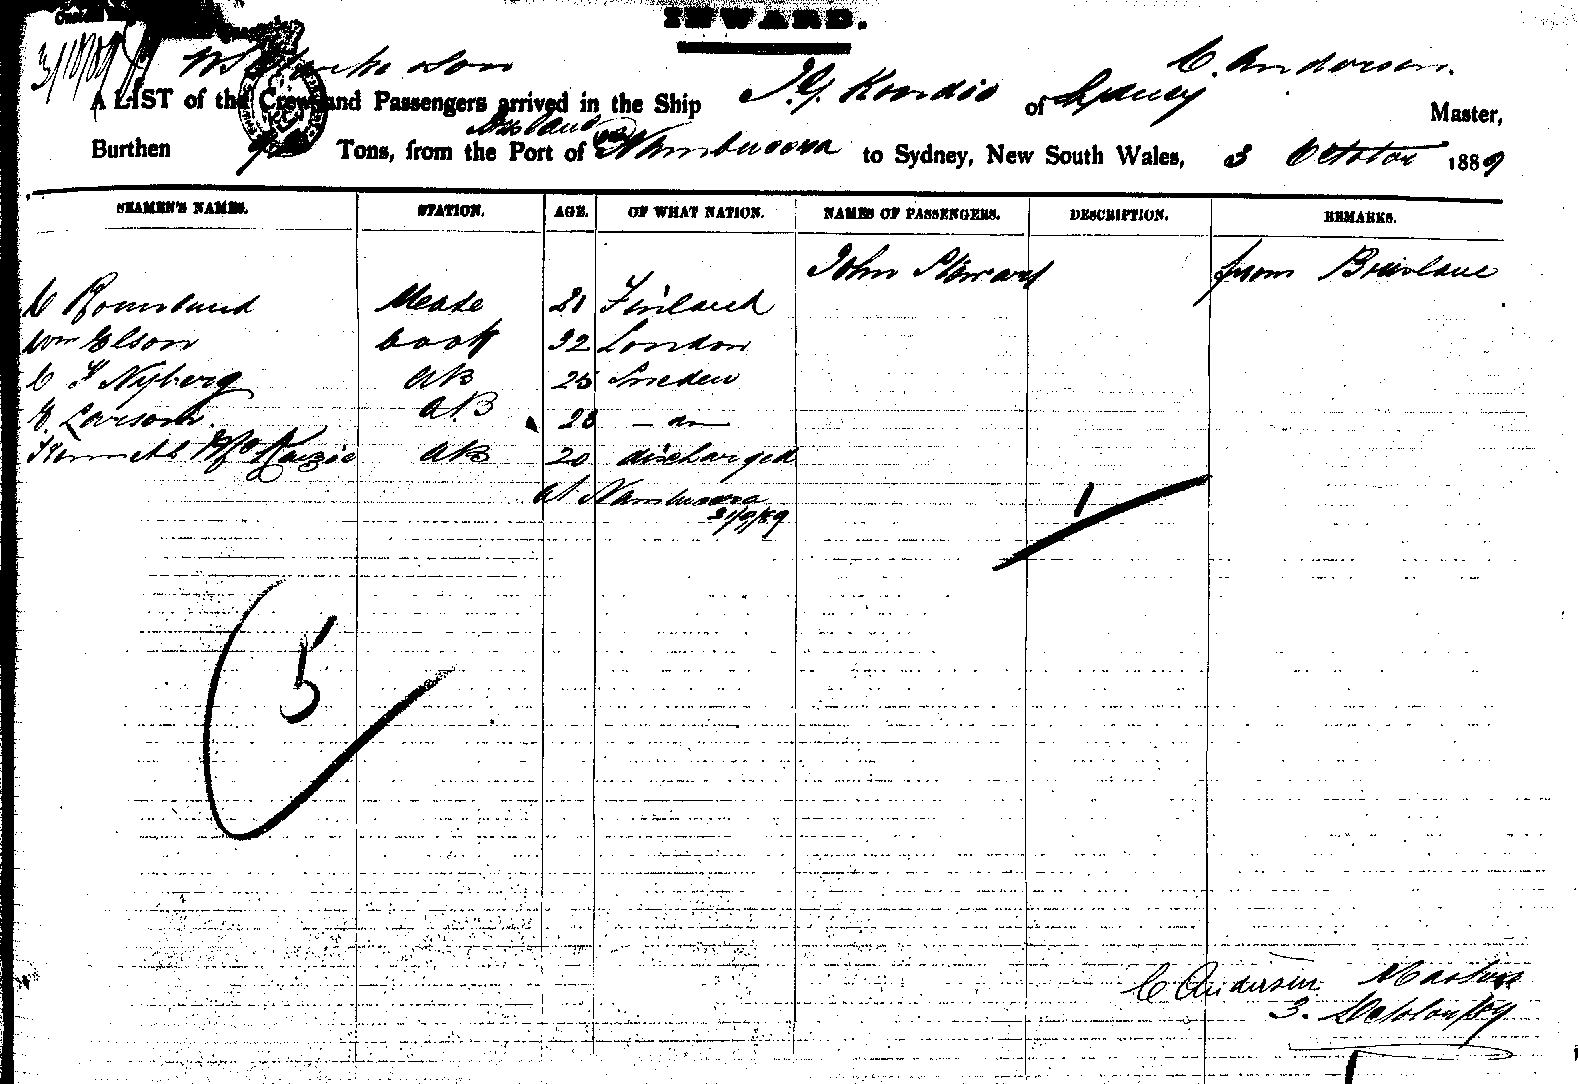 INWARD.
3/10/89
C. Anderson.
A LIST of the Crew and Passengers arrived in the Ship of Sydney Master,
Burthen Tons, from the Port of Nambucca to Sydney, New South Wales, 3 October 1889
SEAMEN'S NAMES. STATION. AGE. OF WHAT NATION. NAMES OF PASSENGERS. DESCRIPTION. REMARKS.
John Steward from Brisbane
C Mate 21 Finland
Wm Elson Cook 32 London
C F Nyberg AB 25 Sweden
Larson AB 23 - do -
Kenneth McKenzie AB 20 discharged
at Nambucca
1
5
C Anderson Master
3. October/89